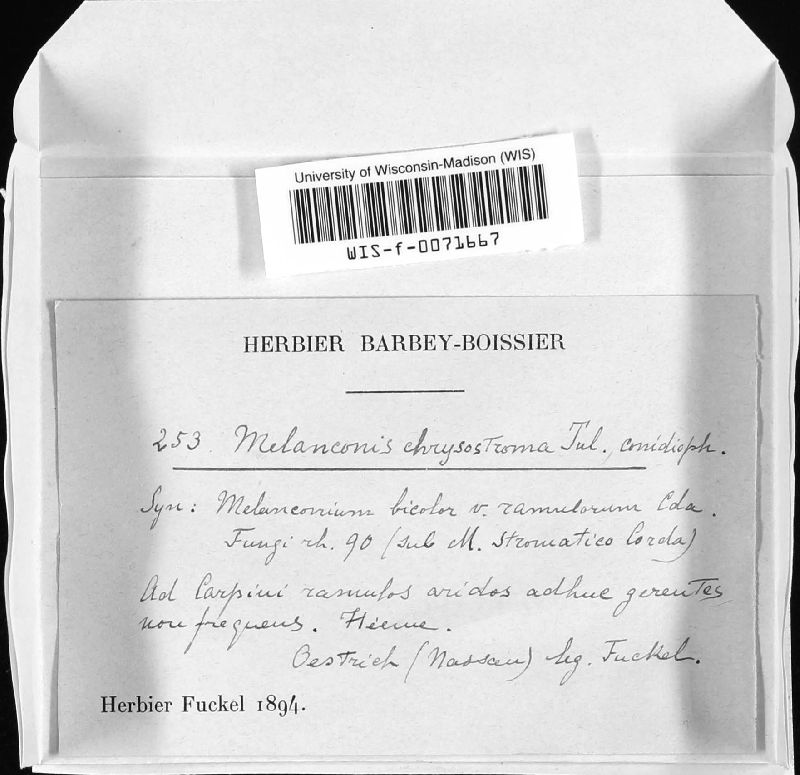 University of Wisconsin-Madison (WIS)
WIS-f-0071667
HERBIER BARBEY-BOISSIER
253. Melanconis chrysostroma Tul., conidioph.
Syn: Melanconium bicolor v. ramulorum Cda.
Fungi rh. 90 (sub M. Stromatico Corda)
Ad Carpini ramulos aridos adhuc gerentes
non frequens. Hieme.
Oestrich (Nassau) leg. Fuckel.
Herbier Fuckel 1894.